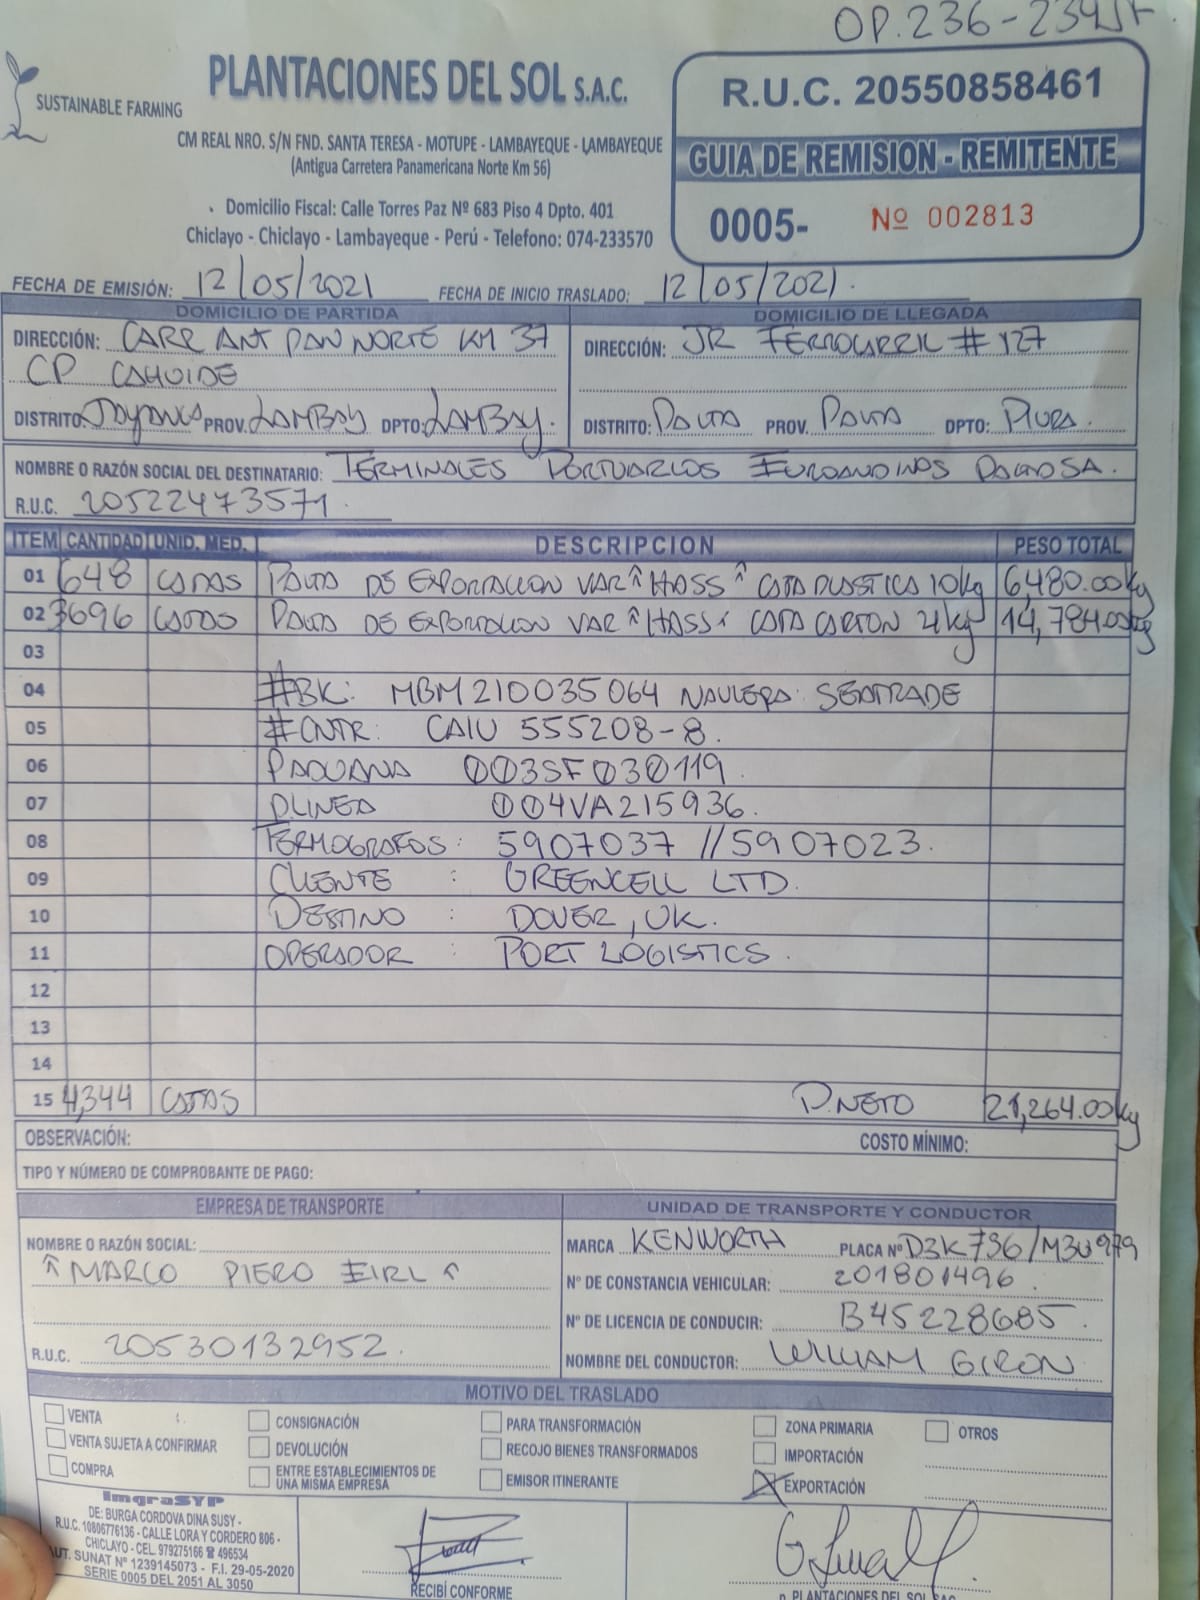 OP. 236 -
SUSTAINABLE FARMING
PLANTACIONES DEL SOL S.A.C.
CM REAL NRO. S/N FND. SANTA TERESA - MOTUPE - LAMBAYEQUE - LAMBAYEQUE
(Antigua Carretera Panamericana Norte Km 56)
Domicilio Fiscal: Calle Torres Paz Nº 683 Piso 4 Dpto. 401
Chiclayo - Chiclayo - Lambayeque - Perú - Telefono: 074-233570
R.U.C. 20550858461
GUIA DE REMISION - REMITENTE
0005- Nº 002813
FECHA DE EMISIÓN: 12/05/2021 FECHA DE INICIO TRASLADO: 12/05/2021.
DOMICILIO DE PARTIDA
DIRECCIÓN: CARR ANT PAN NORTE KM 37
CP CAHUIDE
DISTRITO: Jayanca PROV. LAMBAY DPTO: LAMBAY.
DOMICILIO DE LLEGADA
DIRECCIÓN: JR FERROCARRIL # 127
DISTRITO: PAITA PROV. PAITA DPTO: PIURA.
NOMBRE O RAZÓN SOCIAL DEL DESTINATARIO: TERMINALES PORTUARIOS EUROANDINOS PAITA SA.
R.U.C. 20522473571.
ITEM CANTIDAD UNID. MED. DESCRIPCION PESO TOTAL
01 648 CAJAS PALTA DE EXPORTACION VAR "HASS" CAJA PLASTICA 10kg 6,480.00kg
02 3696 CAJAS PALTA DE EXPORTACION VAR "HASS" CAJA CARTON 4kg 14,784.00kg
03
04 #BK: MBM210035064 NAVIERA: SEATRADE
05 #CNTR: CAIU 555208-8.
06 P.ADUANA 003SF030119.
07 P.LINEA 004VA215936.
08 TERMOGRAFOS: 5907037 // 5907023.
09 CLIENTE : GREENCELL LTD.
10 DESTINO : DOVER, UK.
11 OPERADOR : PORT LOGISTICS.
12
13
14
15 4,344 CAJAS P.NETO 21,264.00kg
OBSERVACIÓN: COSTO MÍNIMO:
TIPO Y NÚMERO DE COMPROBANTE DE PAGO:
EMPRESA DE TRANSPORTE
NOMBRE O RAZÓN SOCIAL:
"MARCO PIERO EIRL"
R.U.C. 20530132952.
UNIDAD DE TRANSPORTE Y CONDUCTOR
MARCA KENWORTH PLACA Nº D3K796/M3U979
Nº DE CONSTANCIA VEHICULAR: 201801496
Nº DE LICENCIA DE CONDUCIR: B45228685.
NOMBRE DEL CONDUCTOR: WILLIAM GIRON
MOTIVO DEL TRASLADO
VENTA CONSIGNACIÓN PARA TRANSFORMACIÓN ZONA PRIMARIA OTROS
VENTA SUJETA A CONFIRMAR DEVOLUCIÓN RECOJO BIENES TRANSFORMADOS IMPORTACIÓN
COMPRA ENTRE ESTABLECIMIENTOS DE UNA MISMA EMPRESA EMISOR ITINERANTE EXPORTACIÓN
ImgraSYP
DE: BURGA CORDOVA DINA SUSY -
R.U.C. 10806776136 - CALLE LORA Y CORDERO 806 -
CHICLAYO - CEL. 979275166 ☎ 496534
AUT. SUNAT Nº 1239145073 - F.I. 29-05-2020
SERIE 0005 DEL 2051 AL 3050
RECIBÍ CONFORME
p. PLANTACIONES DEL SOL SAC